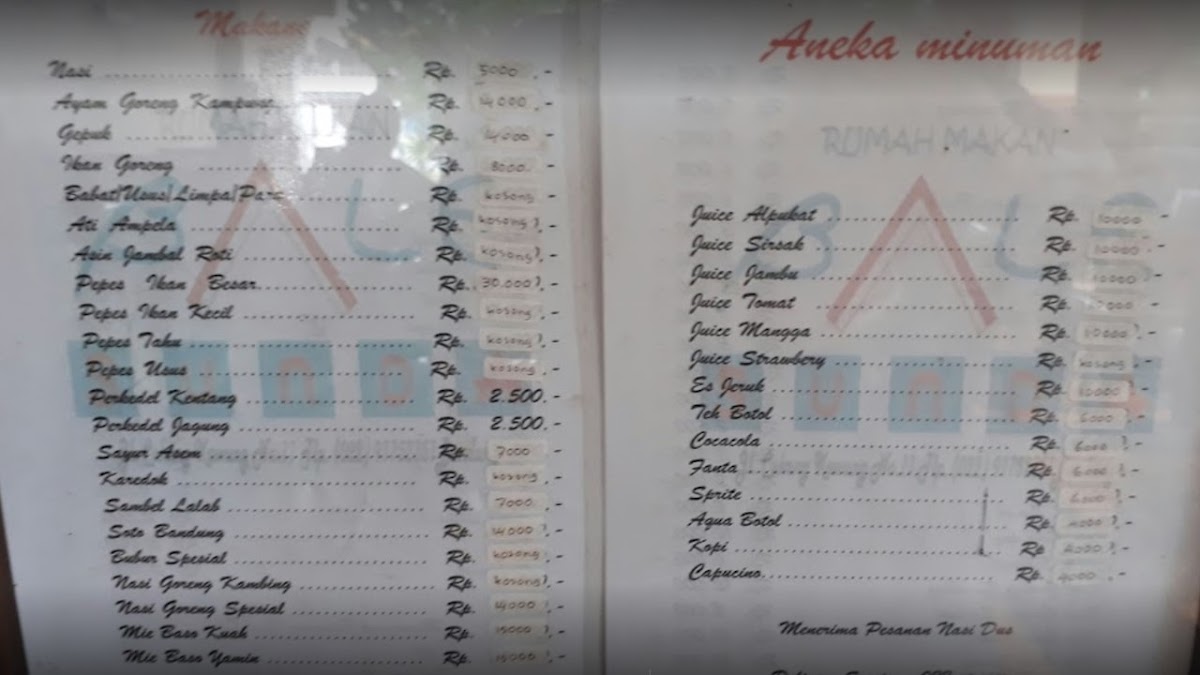 Makan
Nasi Rp. 5000 .-
Ayam Goreng Kampung Rp. 14000 .-
Gepuk Rp. 14000 .-
Ikan Goreng Rp. 8000 .-
Babat/Usus/Limpa/Paru Rp. kosong .-
Ati Ampela Rp. kosong .-
Asin Jambal Roti Rp. kosong .-
Pepes Ikan Besar Rp. 30.000 .-
Pepes Ikan Kecil Rp. kosong .-
Pepes Tahu Rp. kosong .-
Pepes Usus Rp. kosong .-
Perkedel Kentang Rp. 2.500.-
Perkedel Jagung Rp. 2.500.-
Sayur Asem Rp. 7000 .-
Karedok Rp. kosong .-
Sambel Lalab Rp. 7000 .-
Soto Bandung Rp. 14000 .-
Bubur Spesial Rp. kosong .-
Nasi Goreng Kambing Rp. kosong .-
Nasi Goreng Spesial Rp. 14000 .-
Mie Baso Kuah Rp. 15000 .-
Mie Baso Yamin Rp. 15000 .-
Aneka minuman
RUMAH MAKAN
Juice Alpukat Rp. 10000 .-
Juice Sirsak Rp. 10000 .-
Juice Jambu Rp. 10000 .-
Juice Tomat Rp. .-
Juice Mangga Rp. 10000 .-
Juice Strawbery Rp. kosong .-
Es Jeruk Rp. 10000 .-
Teh Botol Rp. 6000 .-
Cocacola Rp. 6000 .-
Fanta Rp. 6000 .-
Sprite Rp. 6000 .-
Aqua Botol Rp. 4000 .-
Kopi Rp 4000 .-
Capucino Rp. 4000 .-
Menerima Pesanan Nasi Dus